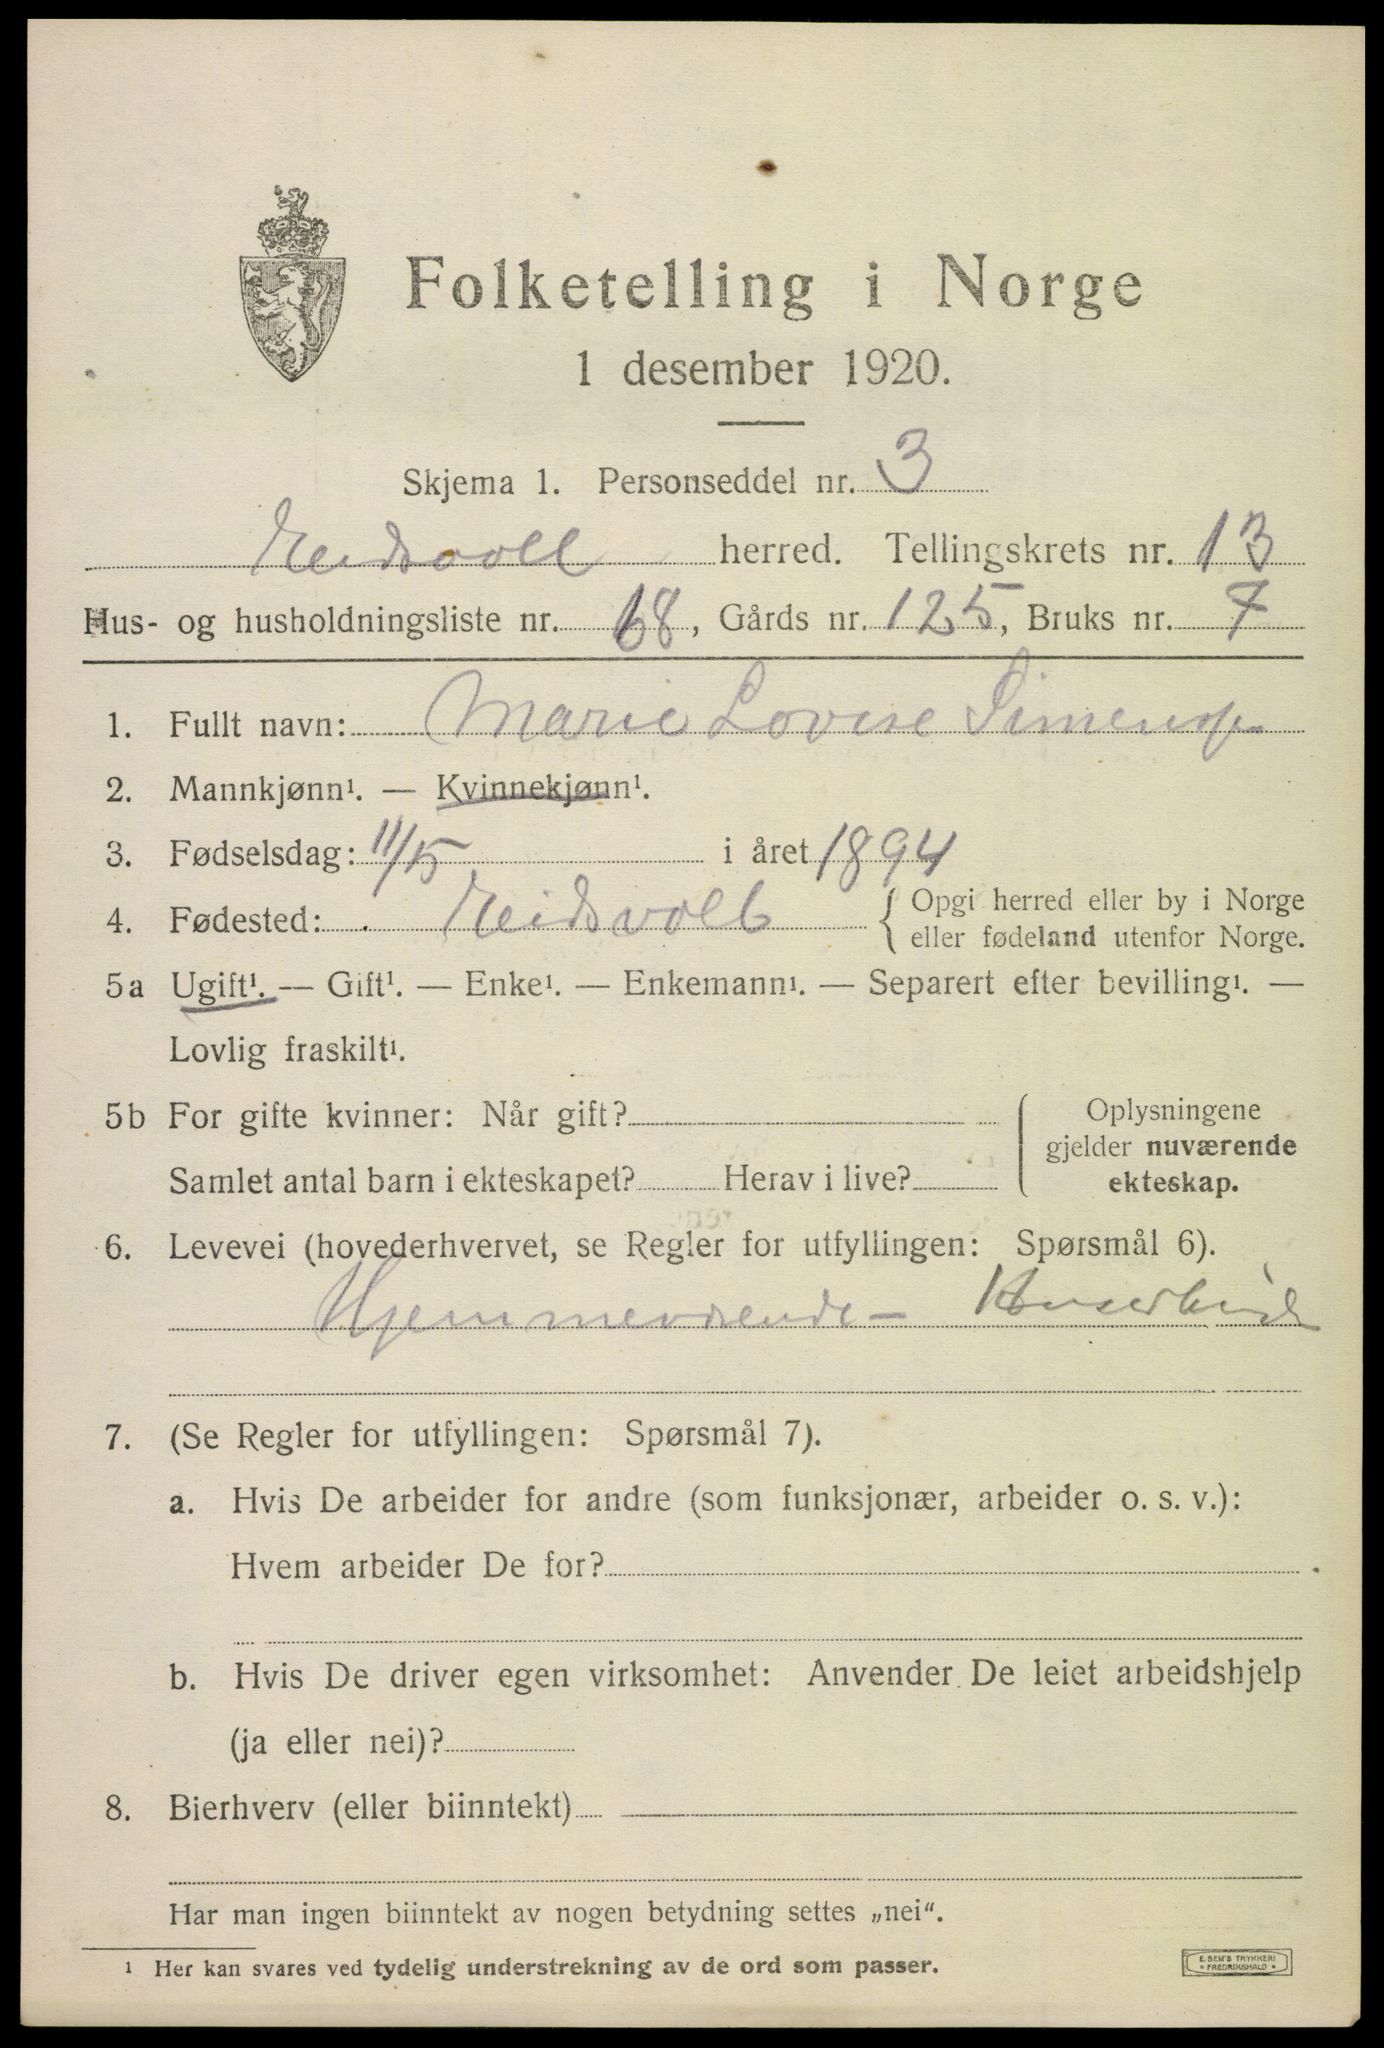 Folketelling i Norge
1 desember 1920.
Skjema 1. Personseddel nr. 3
Eidsvoll herred. Tellingskrets nr. 13
Hus- og husholdningsliste nr. 68, Gårds nr. 125, Bruks nr. 7
1. Fullt navn: Marie Lovise
2. Mannkjønn¹. — Kvinnekjønn¹.
3. Fødselsdag: 11/5 i året 1894
4. Fødested: Eidsvoll { Opgi herred eller by i Norge
eller fødeland utenfor Norge.
5a Ugift¹. — Gift¹. — Enke¹. — Enkemann¹. — Separert efter bevilling¹. —
Lovlig fraskilt¹.
5b For gifte kvinner: Når gift?
Samlet antal barn i ekteskapet? Herav i live?
Oplysningene
gjelder nuværende
ekteskap.
6. Levevei (hovederhvervet, se Regler for utfyllingen: Spørsmål 6).
Hjemmeværende –
7. (Se Regler for utfyllingen: Spørsmål 7).
a. Hvis De arbeider for andre (som funksjonær, arbeider o. s. v.):
Hvem arbeider De for?
b. Hvis De driver egen virksomhet: Anvender De leiet arbeidshjelp
(ja eller nei)?
8. Bierhverv (eller biinntekt)
Har man ingen biinntekt av nogen betydning settes „nei“.
¹ Her kan svares ved tydelig understrekning av de ord som passer.
E. SEM'S TRYKKERI
* FREDRIKSHALD *